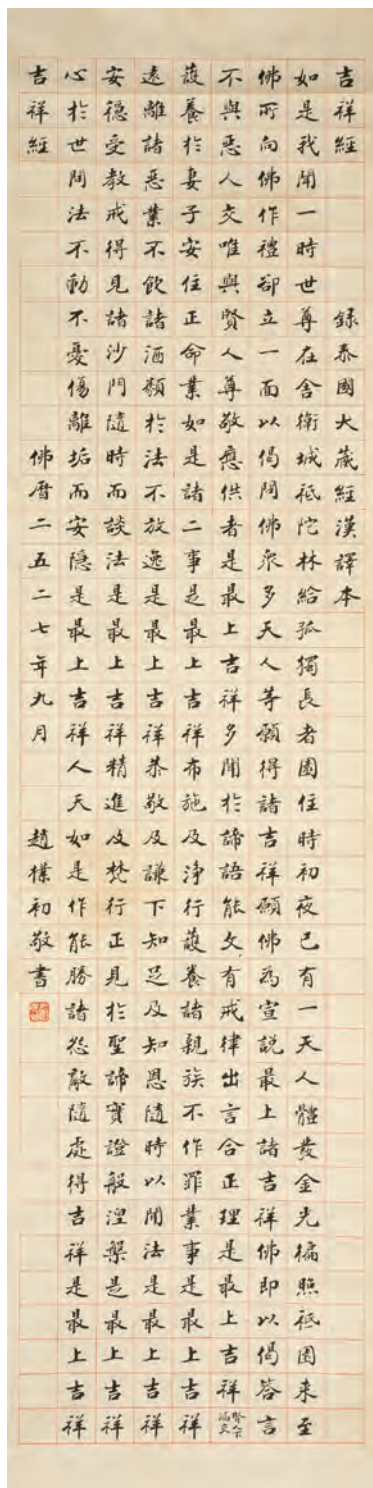 吉祥經 錄泰國大藏經漢譯本
如是我聞一時世尊在舍衛城祇陀林給孤獨長者園住時初夜已有一天人體發金光徧照祇園来至
佛所向佛作禮卻立一面以偈問佛眾多天人等願得諸吉祥願佛為宣說最上諸吉祥佛即以偈答言
不與惡人交唯與賢人尊敬應供者是最上吉祥多聞於諦語能文有戒律出言合正理是最上吉祥
護養於妻子安住正命業如是諸二事是最上吉祥布施及淨行護養諸親族不作罪業事是最上吉祥
遠離諸惡業不飲諸酒類於法不放逸是最上吉祥恭敬及謙下知足及知恩隨時以聞法是最上吉祥
安穩受教戒得見諸沙門隨時而談法是最上吉祥精進及梵行正見於聖諦實證般涅槃是最上吉祥
心於世間法不動不憂傷離垢而安隱是最上吉祥人天如是作能勝諸怨敵隨處得吉祥是最上吉祥
吉祥經 佛曆二五二七年九月 趙樸初敬書